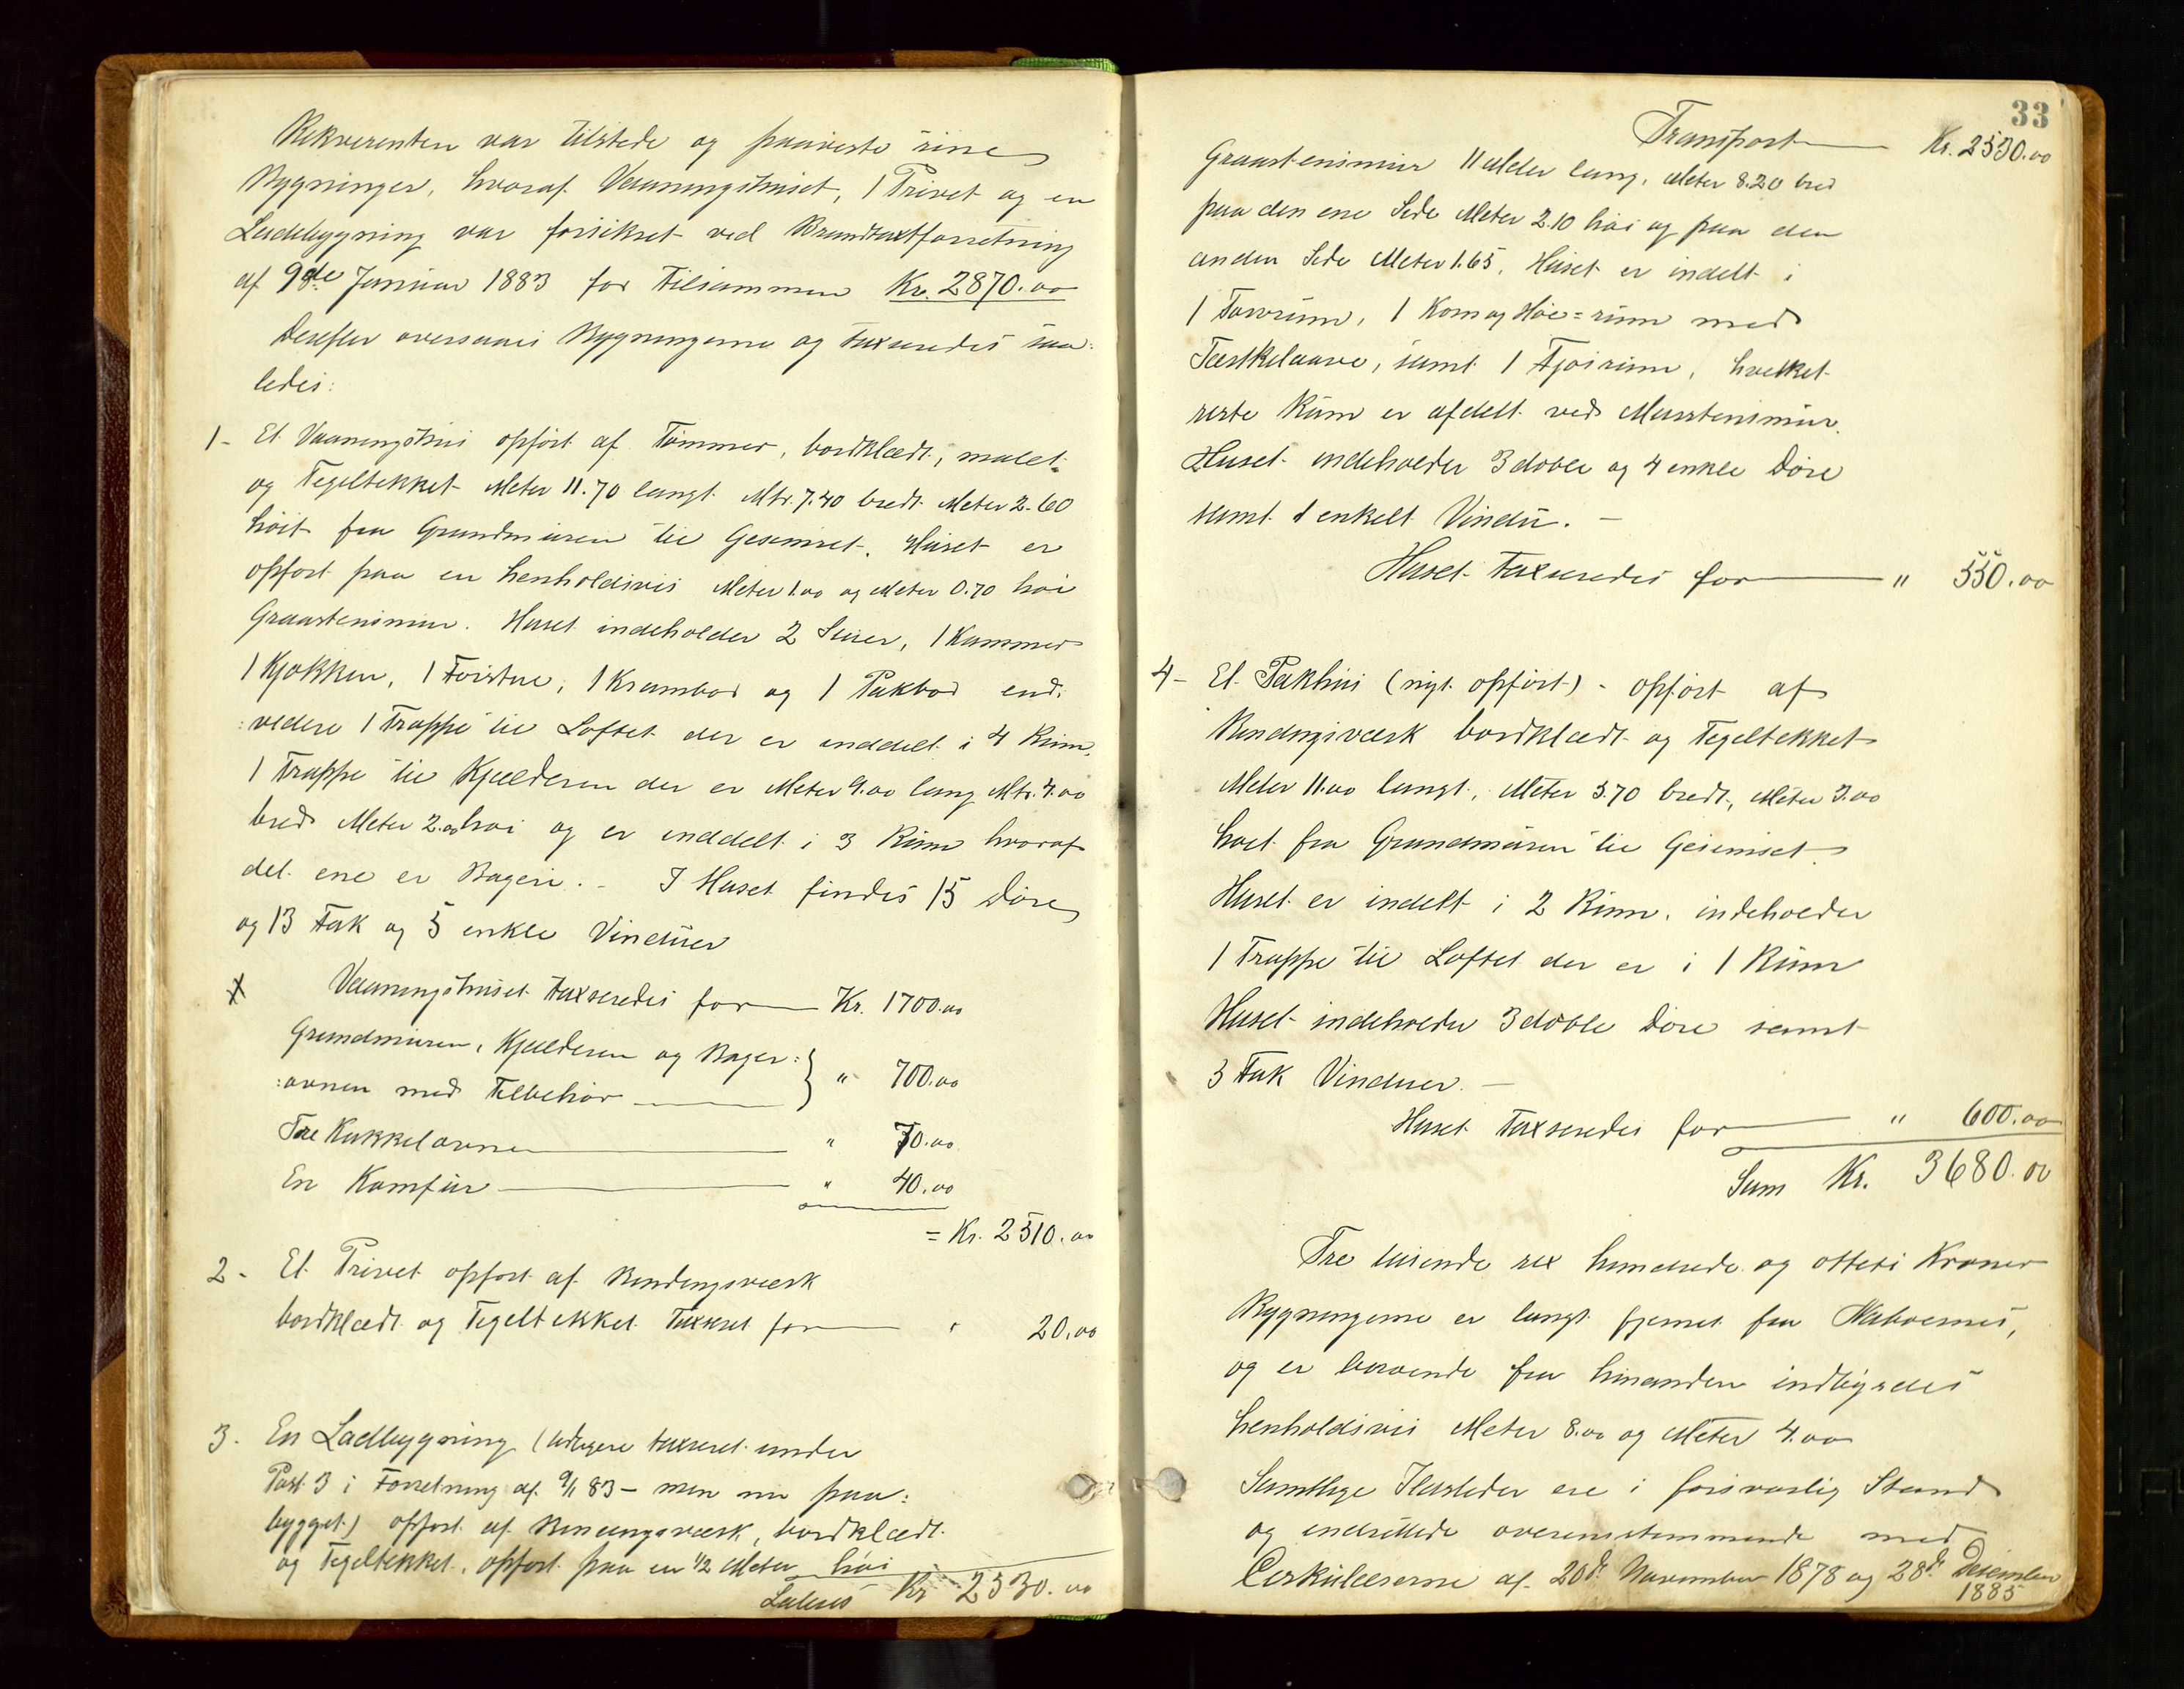 Rekvirenten var tilstede og paaviste sine
Bygninger, hvoraf Vaaningshuset, 1 Privet og en
Ladebygning var forsikret ved Brandtaxtforretning
af 9de Januar 1883 for tilsammen Kr. 2870.00
Derefter oversaaes Bygningerne og taxeredes saa=
ledes:
1- Et Vaaningshus opført af Tømmer, bordklædt, malet
og Tegeltekket Meter 11.70 langt Mtr. 7.40 bredt Meter 2.60
høit fra Grundmuren til Gesimset. Huset er
opført paa en henholdsvis Meter 1.00 og Meter 0.70 høi
Graastensmur. Huset indeholder 2 Stuer, 1 Kammer
1 Kjøkken, 1 Forstue, 1 Krambod og 1 Pakbod end:
:videre 1 Trappe til Loftet der er inddelt i 4 Rum,
1 Trappe til Kjælderen der er Meter 9.00 lang Mtr. 7.00
bred Meter 2.00 høi og er inddelt i 3 Rum hvoraf
det ene er Bageri. - I Huset findes 15 Døre
og 13 Fak og 5 enkle Vinduer
Vaaningshuset taxeredes for Kr. 1700.00
Grundmuren, Kjælderen og Bager:
:ovnen med Tilbehør " 700.00
Tre Kakkelovne " 70.00
En Komfur " 40.00
= Kr. 2510.00
2- Et Privet opført af Bindingsværk
bordklædt og Tegeltekket taxeret for " 20.00
3. En Ladbygning (tidligere taxeret under
Post 3 i Forretning af 9/1 83 - men nu paa:
bygget) opført af Bindingsværk, bordklædt
og Tegeltekket, opført paa en 1/2 Meter høi
Lateris Kr 2530.00
33
Transport Kr. 2530.00
Graastensmur 11 Meter lang, Meter 8.20 bred
paa den ene Side Meter 2.10 høi og paa den
anden Side Meter 1.65. Huset er indelt i
1 Torvrum, 1 Korn og Høe=rum med
Tærskelaave, samt 1 Fjøsrum, hvilket
sidste Rum er afdelt ved Murstensmur.
Huset indeholder 3 doble og 4 enkle Døre
samt 1 enkelt Vindu. -
Huset taxeredes for " 550.00
4- Et Pakhus (nyt opført) - opført af
Bindingsværk bordklædt og Tegeltekket
Meter 11.00 langt, Meter 5.70 bredt, Meter 3.00
høit fra Grundmuren til Gesimset.
Huset er indelt i 2 Rum, indeholder
1 Trappe til Loftet der er i 1 Rum
Huset indeholder 3 doble Døre samt
3 Fak Vinduer. -
Huset taxeredes for " 600.00
Sum Kr. 3680.00
Tre tusende sex hundrede og otteti Kroner
Bygningerne er langt fjernet fra Naboernes,
og er beroende fra hinanden indbyrdes
henholdsvis Meter 8.00 og Meter 4.00
Samtlige Ildsteder ere i forsvarlig Stand
og indrettede overensstemmende med
Cirkulærerne af 20de November 1878 og 28de Desember
1885